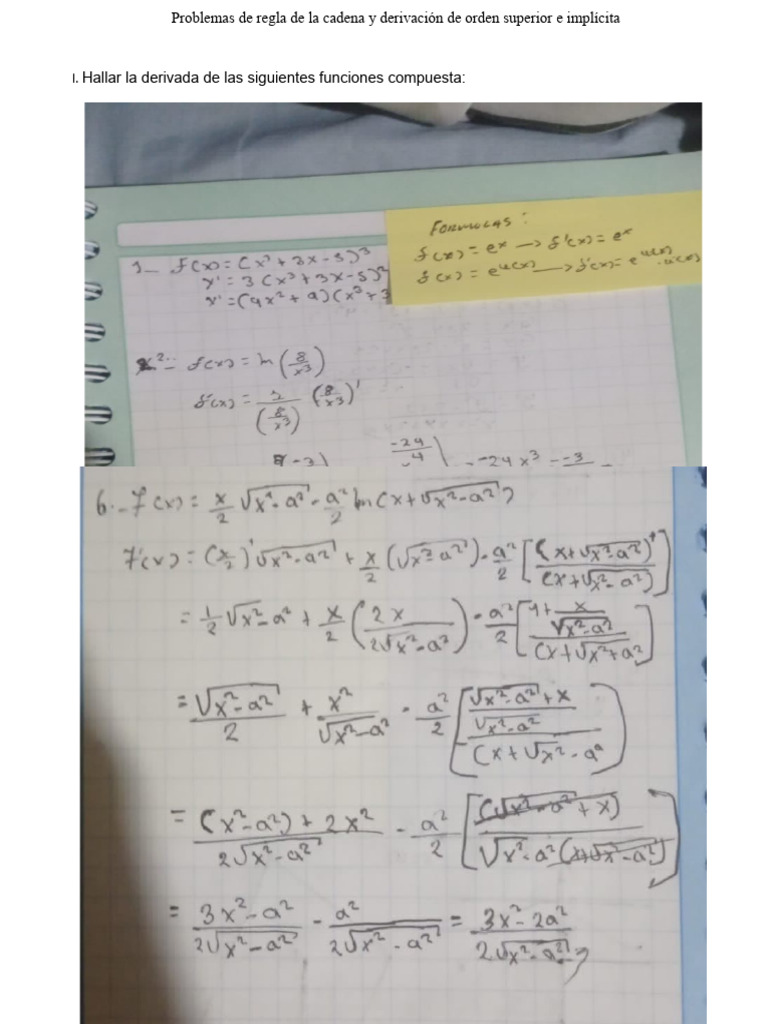 Problemas de regla de la cadena y derivación de orden superior e implícita
I. Hallar la derivada de las siguientes funciones compuesta:
FORMULAS:
f(x) = e^x → f'(x) = e^x
f(x) = e^u(x) → f'(x) = e^u(x) · u(x)
1_ f(x) = (x³ + 3x - 5)³
y' = 3(x³ + 3x - 5)²
y' = (9x² + 9)(x³ + 3
2.- f(x) = ln(8/x³)
f'(x) = 1/(8/x³) (8/x³)'
-24/ -24x³ = -3
6.- f(x) = x/2 √x²-a² - a²/2 ln(x+√x²-a²)
f'(x) = (x/2)' √x²-a² + x/2 (√x²-a²) - a²/2 [(x+√x²-a²)'/(x+√x²-a²)]
= 1/2 √x²-a² + x/2 (2x/2√x²-a²) - a²/2 [1 + x/√x²-a² / (x+√x²+a²]
= √x²-a²/2 + x²/√x²-a² - a²/2 [√x²-a² + x/√x²-a² / (x+√x²-a²]
= (x²-a²) + 2x²/2√x²-a² - a²/2 [(√x²-a² + x)/√x²-a² (x+√x²-a²)]
= 3x²-a²/2√x²-a² - a²/2√x²-a² = 3x²-2a²/2√x²-a²